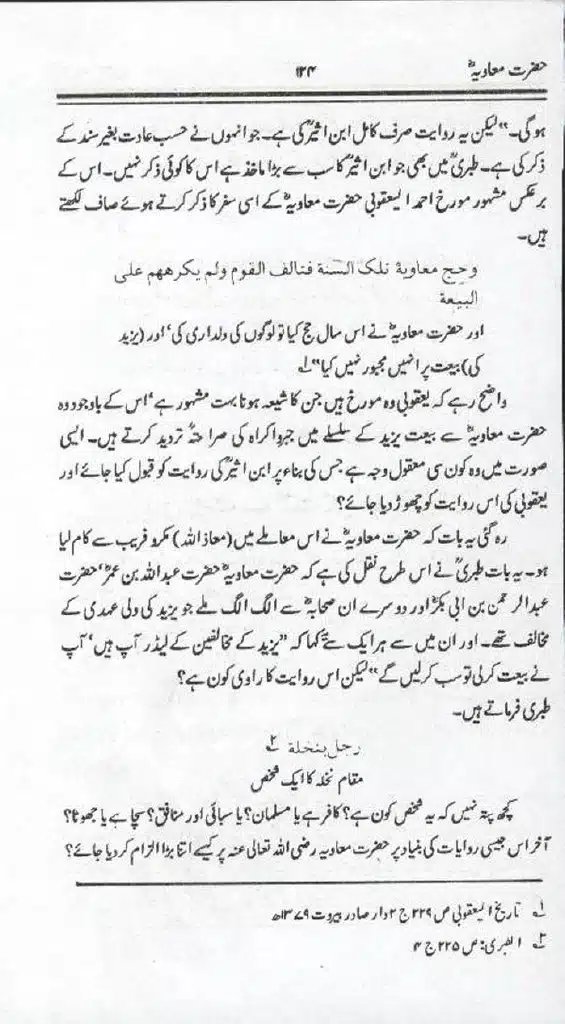 حضرت معاویہؓ ۱۲۴
ہوگی۔" لیکن یہ روایت صرف کامل ابن اثیرؒ کی ہے۔ جو انہوں نے حسب عادت بغیر سند کے
ذکر کی ہے۔ طبریؒ میں بھی جو ابن اثیرؒ کا سب سے بڑا ماخذ ہے اس کا کوئی ذکر نہیں۔ اس کے
برعکس مشہور مورخ احمد الیعقوبی حضرت معاویہؓ کے اسی سفر کا ذکر کرتے ہوئے صاف لکھتے
ہیں۔
وحج معاوية تلك السنة فتالف القوم ولم يكرههم على
البيعة
اور حضرت معاویہؓ نے اس سال حج کیا تو لوگوں کی دلداری کی' اور (یزید
کی) بیعت پر انہیں مجبور نہیں کیا" ۱؎
واضح رہے کہ یعقوبی وہ مورخ ہیں جن کا شیعہ ہونا بہت مشہور ہے' اس کے باوجود وہ
حضرت معاویہؓ سے بیعت یزید کے سلسلے میں جبر و اکراہ کی صراحتہً تردید کرتے ہیں۔ ایسی
صورت میں وہ کون سی معقول وجہ ہے جس کی بناء پر ابن اثیرؒ کی روایت کو قبول کیا جائے اور
یعقوبی کی اس روایت کو چھوڑ دیا جائے؟
رہ گئی یہ بات کہ حضرت معاویہؓ نے اس معاملے میں (معاذ اللہ) مکر و فریب سے کام لیا
ہو۔ یہ بات طبریؒ نے اس طرح نقل کی ہے کہ حضرت معاویہؓ حضرت عبداللہ بن عمرؓ' حضرت
عبدالرحمن بن ابی بکرؓ اور دوسرے ان صحابہؓ سے الگ الگ ملے جو یزید کی ولی عہدی کے
مخالف تھے۔ اور ان میں سے ہر ایک سے کہا کہ "یزید کے مخالفین کے لیڈر آپ ہیں' آپ
نے بیعت کرلی تو سب کرلیں گے" لیکن اس روایت کا راوی کون ہے؟
طبری فرماتے ہیں۔
رجل بنخلة ۲؎
مقام نخلہ کا ایک شخص
کچھ پتہ نہیں کہ یہ شخص کون ہے؟ کافر ہے یا مسلمان؟ یا سبائی اور منافق؟ سچا ہے یا جھوٹا؟
آخر اس جیسی روایات کی بنیاد پر حضرت معاویہ رضی اللہ تعالی عنہ پر کیسے اتنا بڑا الزام کر دیا جائے؟
۱؎ تاریخ الیعقوبی ص ۲۲۹ ج ۲ دار صادر بیروت ۱۳۷۹ھ
۲؎ الطبری: ص ۲۲۵ ج ۴